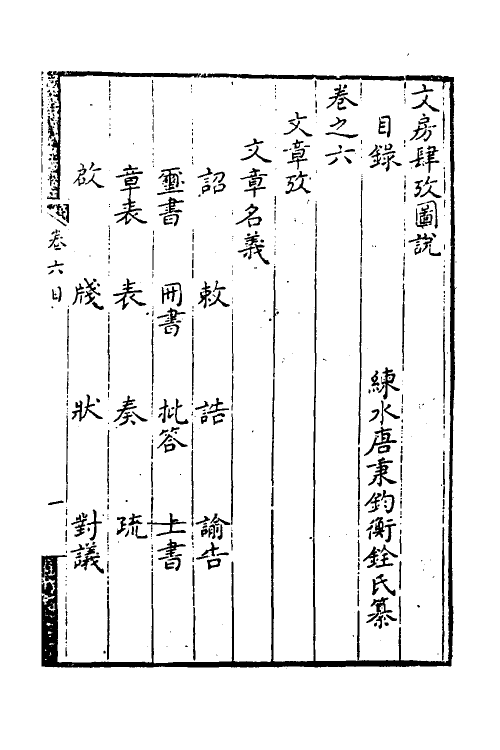 文房肆攷圖說
目錄　練水唐秉鈞衡銓氏纂
卷之六
文章攷
文章名義
詔　敕　誥　諭告
璽書　冊書　批答　上書
章表　表　奏　疏
啟　牋　狀　對議
卷六目　一